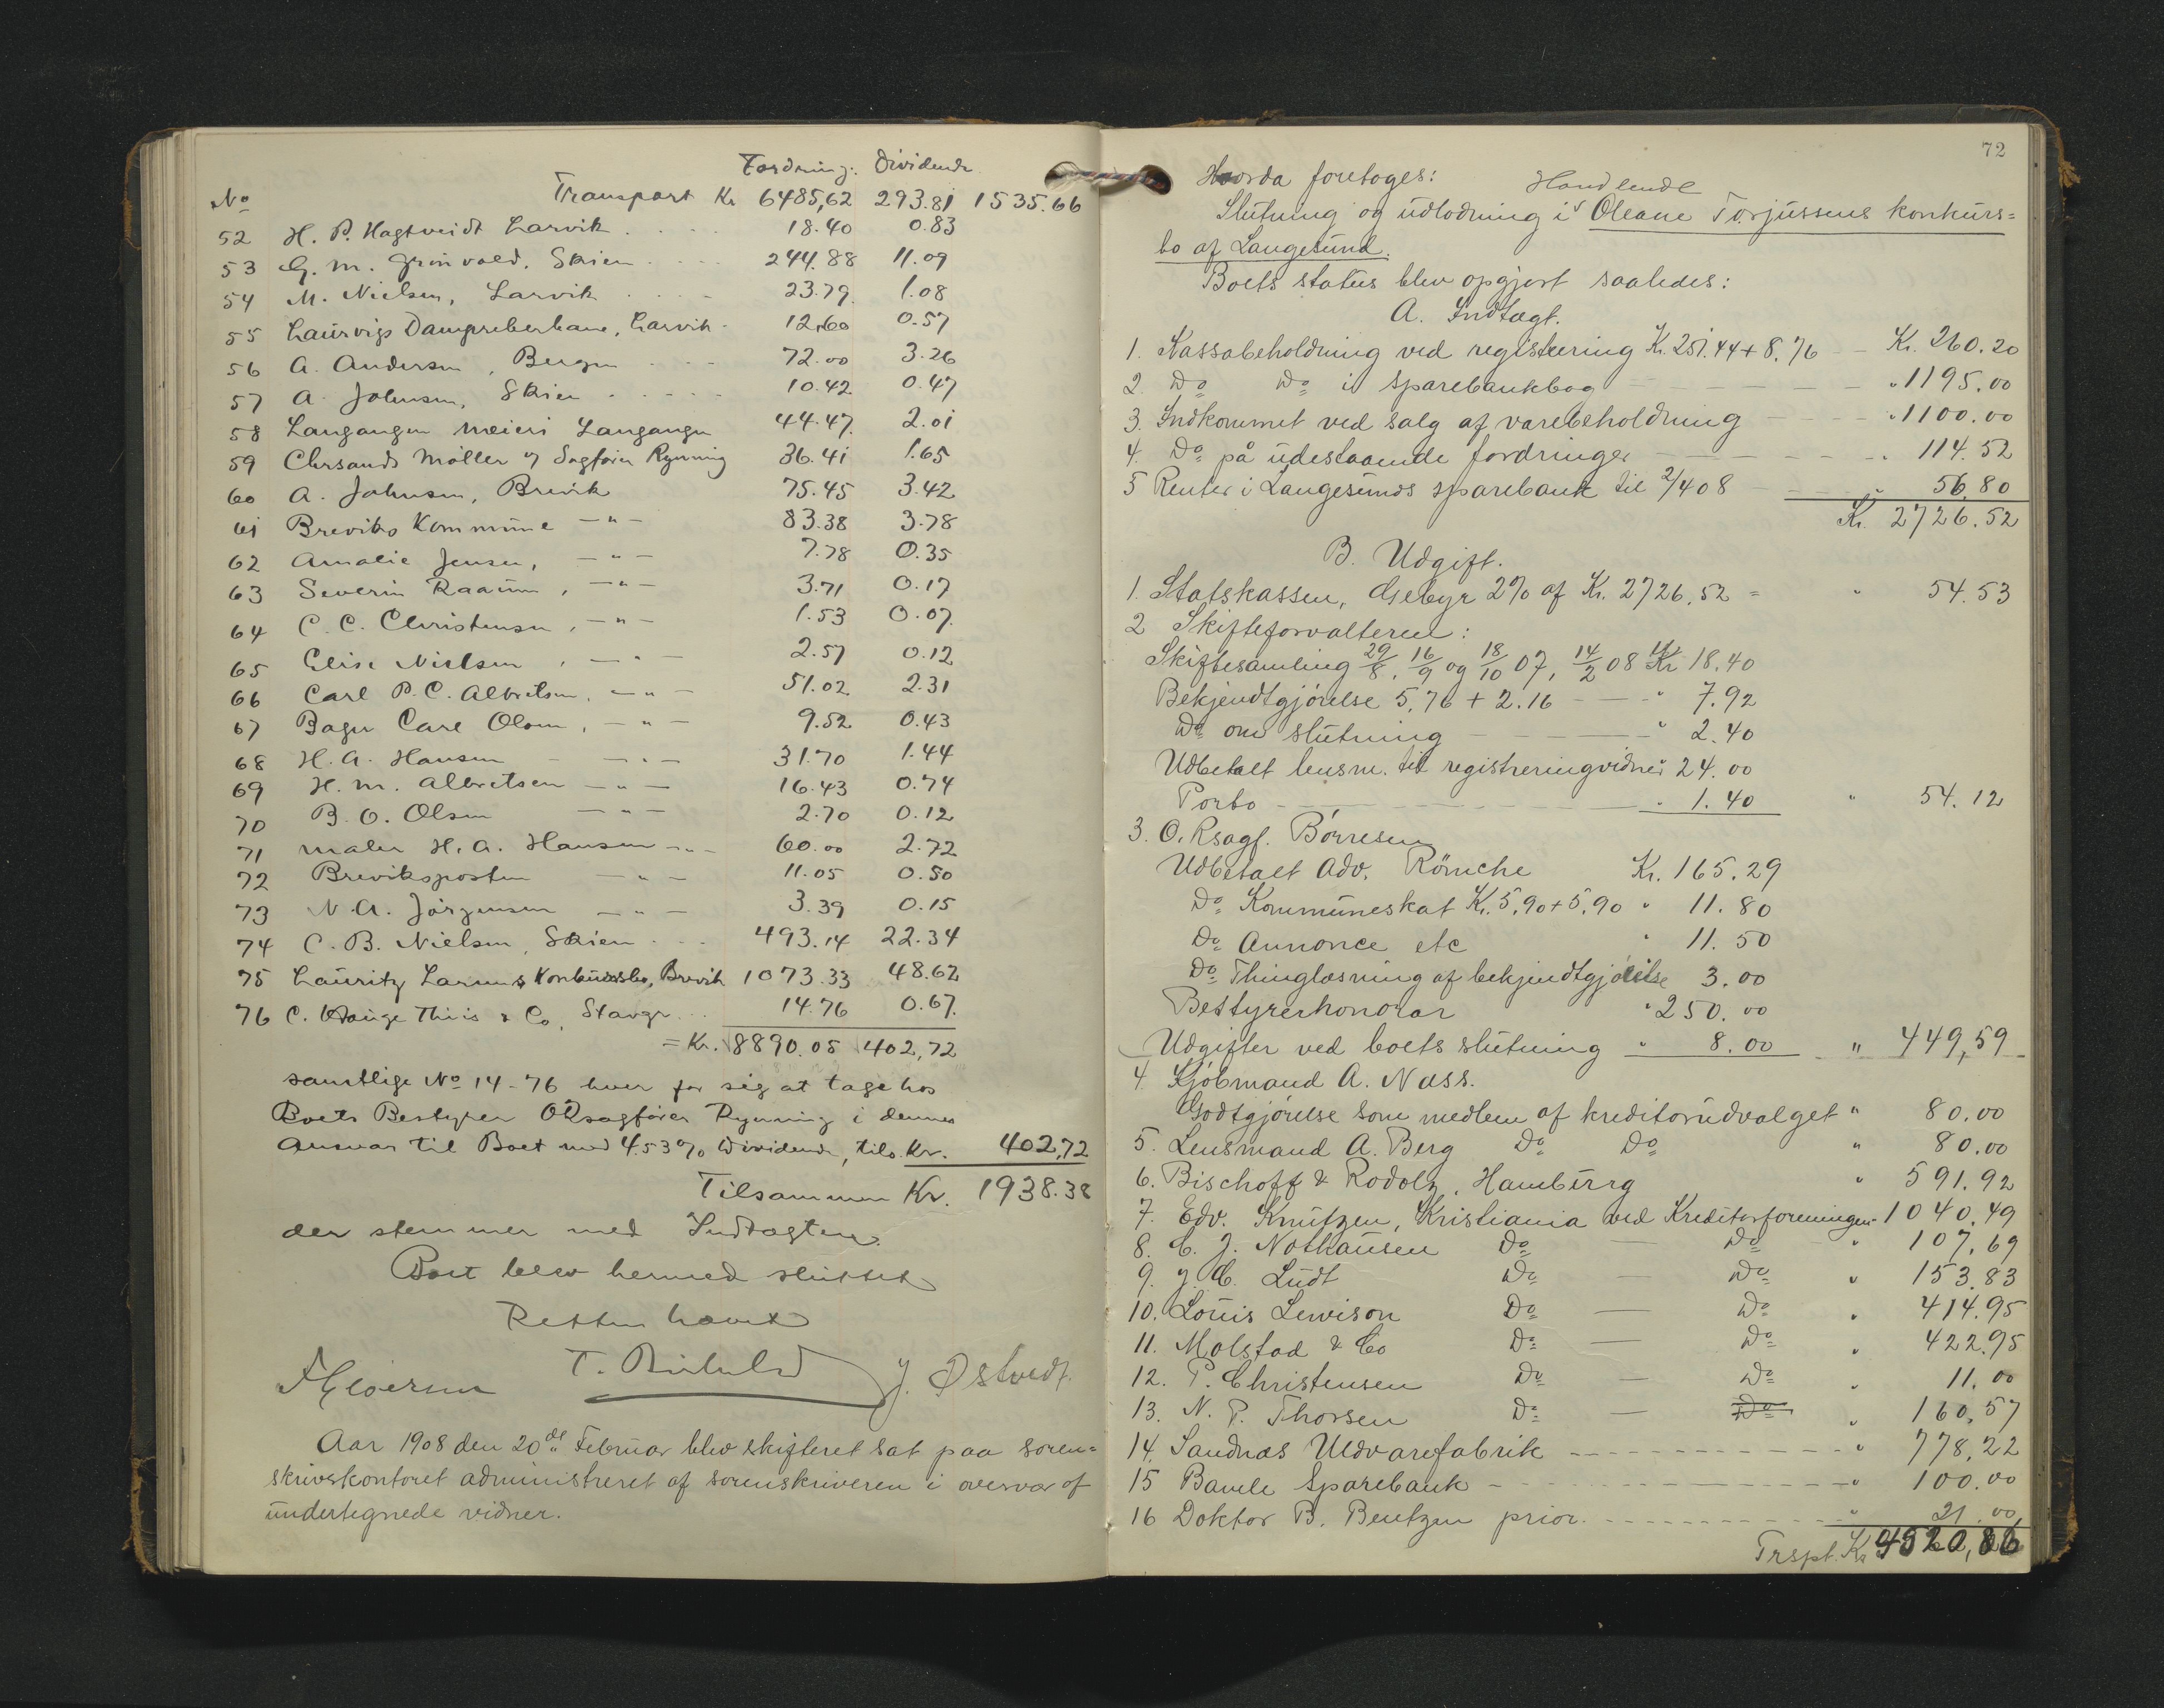 Fordring. Dividende
No Transport Kr 6485,62 293.81 1535.66
52 H. P. Hagtveidt Larvik 18.40 0.83
53 G. M. Grönvold, Skien 244.88 11.09
54 M. Nielsen, Larvik 23.79 1.08
55 Laurvigs Dampreberbane, Larvik 12.60 0.57
56 A. Andersen, Bergen 72.00 3.26
57 A. Johnsen, Skien 10.42 0.47
58 Langangen Meieri Langangen 44.47 2.01
59 Chrsands Möller v Sagfører Rynning 36.41 1.65
60 A. Johnsen, Brevik 75.45 3.42
61 Breviks Kommune —"— 83.38 3.78
62 Amalie Jensen, —"— 7.78 0.35
63 Severin Raaum, —"— 3.71 0.17
64 C. C. Christensen, —"— 1.53 0.07
65 Elise Nielsen, —"— 2.57 0.12
66 Carl P. C. Albretsen, —"— 51.02 2.31
67 Bager Carl Olsen, —"— 9.52 0.43
68 H. A. Hansen —"— 31.70 1.44
69 H. M. Albretsen —"— 16.43 0.74
70 B. O. Olsen —"— 2.70 0.12
71 Maler H. A. Hansen —"— 60.00 2.72
72 Breviksposten —"— 11.05 0.50
73 N. A. Jörgensen —"— 3.39 0.15
74 C. B. Nielsen, Skien 493.14 22.34
75 Lauritz Larsens Konkursbo, Brevik 1073.33 48.62
76 C. Hauge Thiis & Co, Stavgr. 14.76 0.67
= Kr. 8890.05 402,72
samtlige No 14-76 hver for sig at tage hos
Boets Bestyrer ORsagfører Rynning i dennes
Ansvar til Boet med 4.53% Dividende, tils. Kr. 402,72
Tilsammen Kr. 1938.38
der stemmer med Indtagten.
Boet blev hermed sluttet
Retten hævet
J. Østvedt
Aar 1908 den 20de Februar blev skifteret sat paa soren=
skriverkontoret administreret af sorenskriveren i overvær af
undertegnede vidner.
72
Hvorda foretoges:
Handlende
Slutning og udlodning i Oleane Torjussens konkurs=
bo af Langesund.
Boets status blev opgjort saaledes:
A. Indtægt.
1. Kassabeholdning ved registrering Kr. 251.44 + 8.76 — Kr. 260.20
2. Do Do i sparebankbog — " 1195.00
3. Indkommet ved salg af varebeholdning — " 1100.00
4. Do på udestaaende fordringer — " 114.52
5 Renter i Langesunds sparebank til 2/4 08 — " 56.80
Kr. 2726.52
B. Udgift.
1. Statskassen, Gebyr 2% af Kr. 2726,52 = " 54.53
2 Skifteforvalteren:
Skiftesamling 29/8, 16/9 og 18/10 07, 14/2 08 Kr 18.40
Bekjendtgjörelse 5,76 + 2.16 — " 7.92
Do om slutning — " 2.40
Udbetalt lensm. til registreringvidner 24.00
Porto — " 1.40 " 54.12
3. O. Rsagf. Börresen
Udbetalt Adv. Römcke Kr. 165.29
Do Kommuneskat Kr. 5,90 + 5.90 " 11.80
Do Annonce etc " 11.50
Do Thinglæsning af bekjendtgjörelse 3.00
Bestyrerhonorar " 250.00
Udgifter ved boets slutning " 8.00 " 449,59
4. Kjöbmand A. Næss.
Godtgjörelse som medlem af kreditorudvalget " 80.00
5. Lensmand A. Berg Do Do " 80.00
6. Bischoff & Rodolz, Hamburg " 591.92
7. Edv. Knutzen, Kristiania ved Kreditorforeningen " 1040.49
8. C. J. Nothausen Do — Do " 107,69
9. J. C. Ludt Do — Do " 153.83
10. Louis Lewison Do — Do " 414.95
11. Molstad & Co Do — Do " 422.95
12. P. Christensen Do — Do " 11.00
13. N. P. Thorsen Do — Do " 160,57
14. Sandnæs Uldvarefabrik — " 778,22
15 Bamle Sparebank — " 100.00
16 Doktor B. Bentzen prior. — " 21.00
Trspt. Kr 4520,86